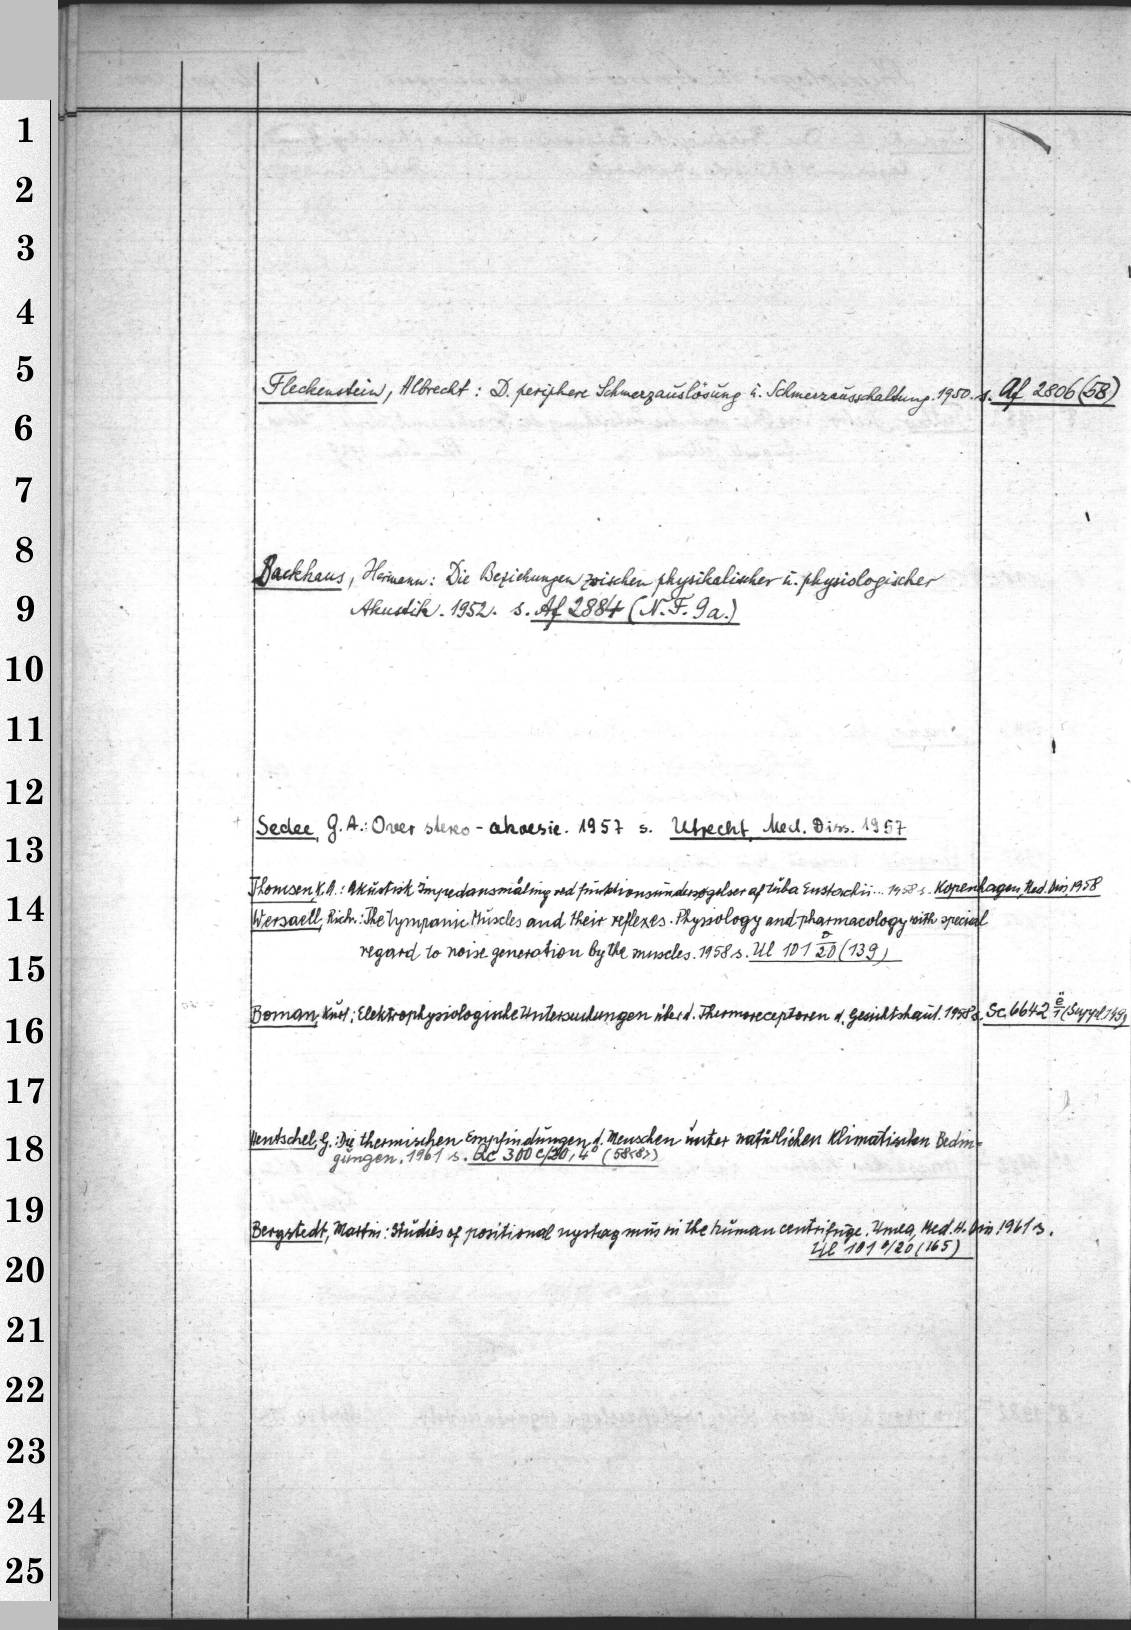 1
2
3
4
5
Fleckenstein, Albrecht: D. periphere Schmerzauslösung u. Schmerzausschaltung. 1950. s. Af 2806 (58)
6
7
8
Backhaus, Hermann: Die Beziehungen zwischen physikalischer u. physiologischer
9
Akustik. 1952. s. Af 2884 (N. F. 9a.)
10
11
12
Sedee, G. A.: Over stereo-akoesie. 1957 s. Utrecht, Med. Diss. 1957
13
Thomsen, K. A.: Akustisk Impedansmåling ved funktionsundersøgelser af tuba Eustachii... 1958 s. Kopenhagen, Med. Diss. 1958
14
Wersaell, Rich.: The tympanic Muscles and their reflexes. Physiology and pharmacology with special
regard to noise generation by the muscles. 1958 s. Ul 101 /20 (139)
15
Boman, Kurt: Elektrophysiologische Untersuchungen über d. Thermoreceptoren d. Gesichtshaut. 1958 s. Sc. 6642 e/1 (Suppl. 149)
16
17
Hentschel, G.: Die thermischen Empfindungen d. Menschen unter natürlichen Klimatischen Bedin-
18
gungen. 1961 s. Qc 300 c/20, 4° (58<8>)
19
Bergstedt, Martin: Studies of positional nystagmus in the human centrifuge. Umea, Med. H. Diss 1961 s.
Ul 101 /20 (165)
20
21
22
23
24
25